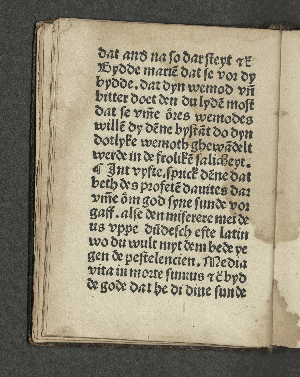 dat ands na so dar steyt ⁊c̄
Bydde mariē dat se vor dy
bydde. dat dyn wemod vn̄
bitter doet den du lydē most
dat se vm̄e ōres wemodes
willē dy dēne bystāt do dyn
dotlyke wemoth ghewādelt
werde in de frolikē salicheyt.
¶ Int vyfte. sprick dēne dat
beth des profetē dauites dar
vm̄e ōm god syne sunde vor
gaff. alse den miserere mei de
us vppe dūdesch efte latin
wo du wult myt dem bede ye
gen de pestelencien. Media
vita in morte sumus ⁊c̄ byd
de gode dat he di dine sunde